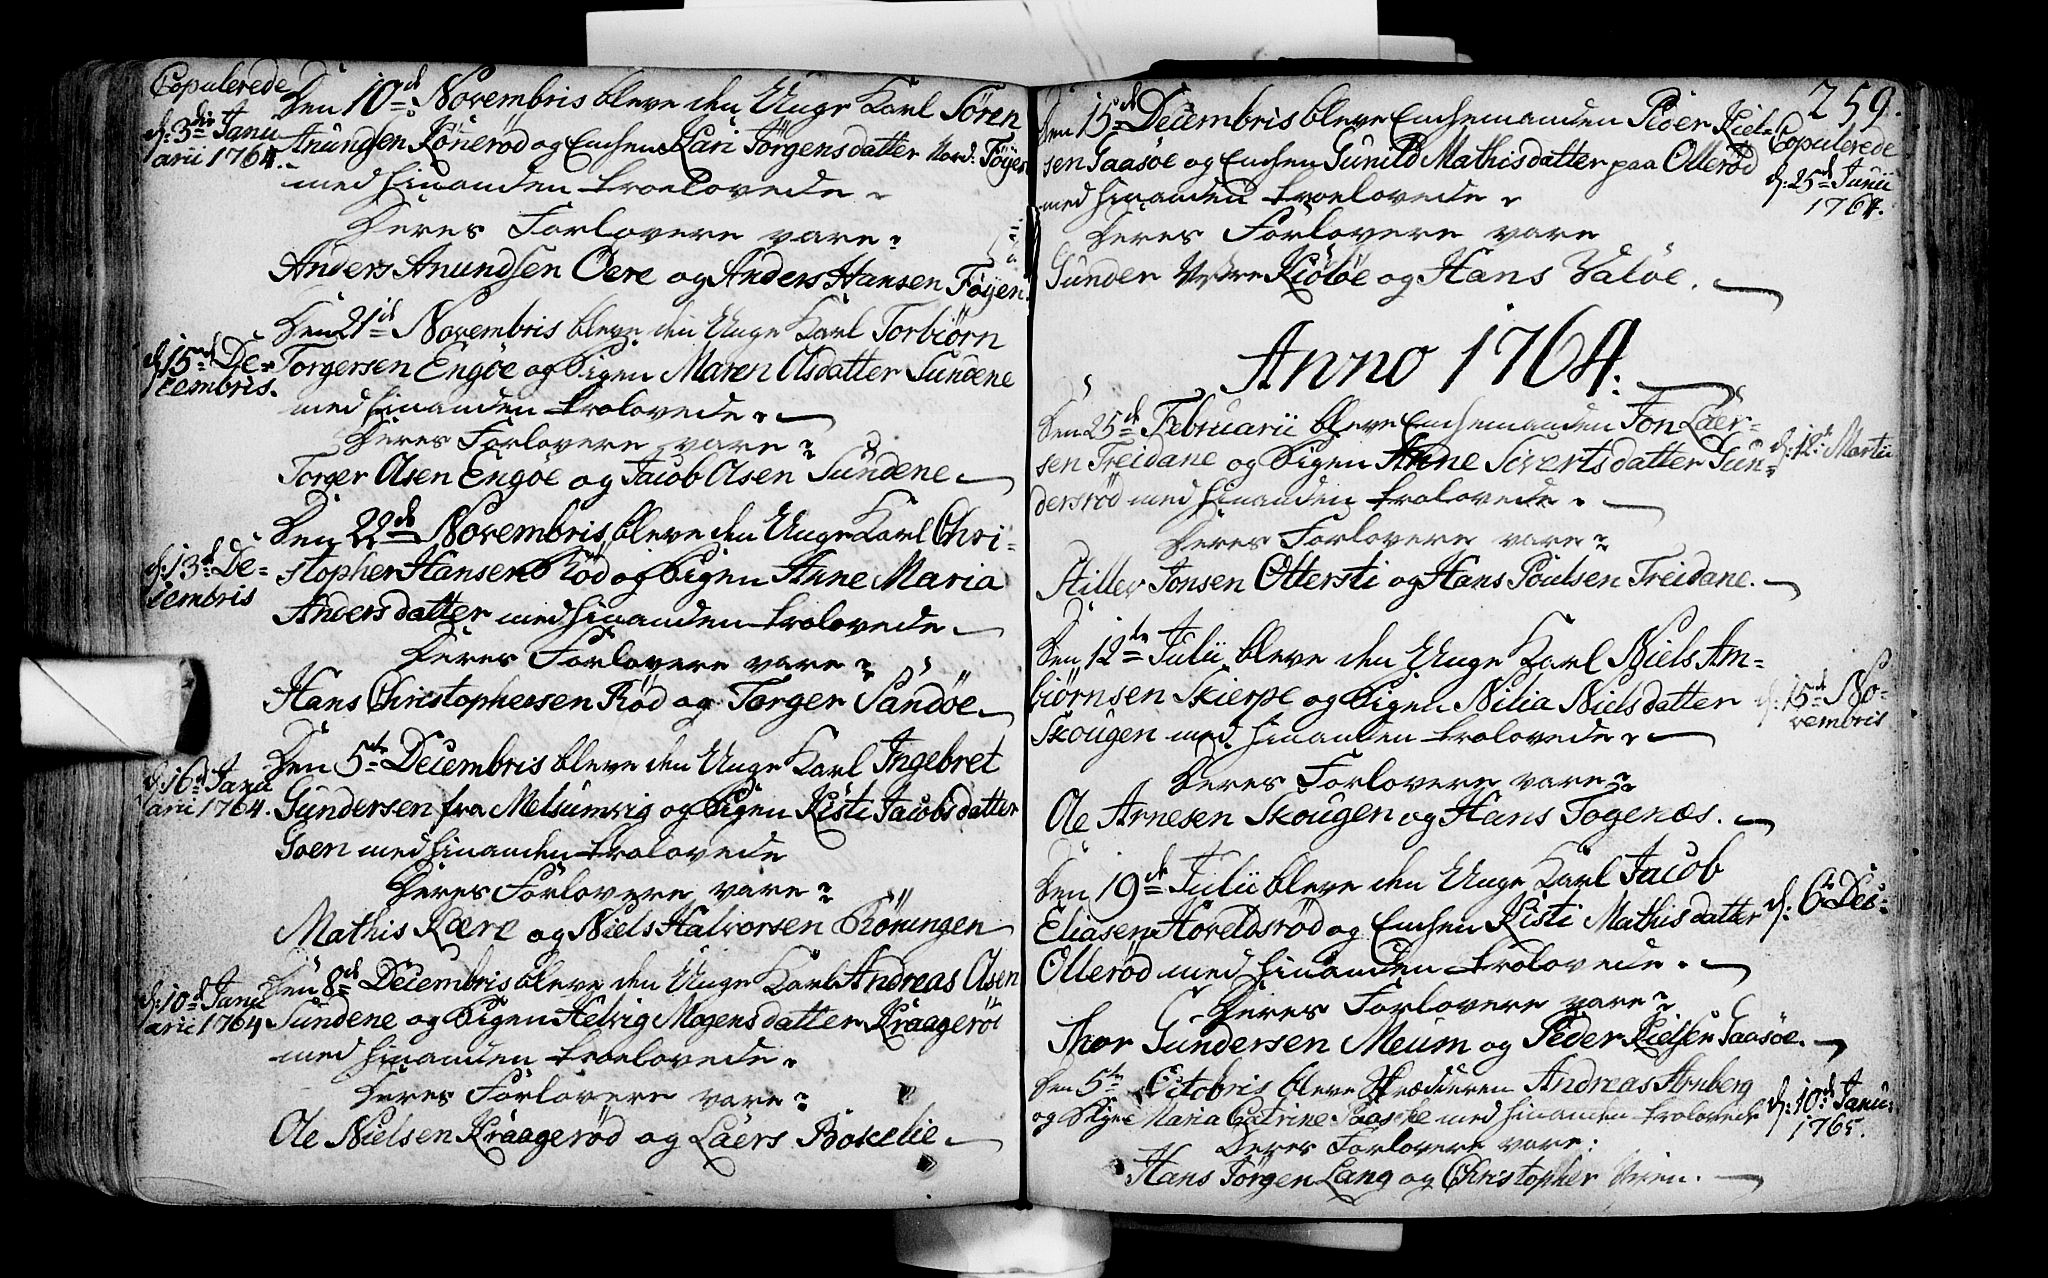 Copulerede
d: 3die Janu
arii 1764.
Den 10de Novembris bleve den Unge Karl Sören
Anundsen Rönerød og Enchen Kari Jörgensdatter Nord: Föyen
med hinanden troelovede.
Deres Forlovere vare:
Anders Anundsen Oere og Anders Hansen Föyen.
d: 15de De-
cembris.
Den 21de Novembris bleve den Unge Karl Torbiørn
Torgersen Engöe og Pigen Maren Olsdatter Sundene
med hinanden trolovede.
Deres Forlovere vare:
Torger Olsen Engöe og Jacob Olsen Sundene
d: 13de De-
cembris
Den 22de Novembris bleve den Unge Karl Chri-
stopher Hansen Röd og Pigen Anne Maria
Andersdatter med hinanden trolovede
Deres Forlovere vare:
Hans Christophersen Röd og Torger Sandöe
d: 16de Janu
arii 1764.
Den 5te Decembris bleve den Unge Karl Ingebret
Gundersen fra Melsumvig og Pigen Kisti Jacobsdatter
Goen med hinanden trolovede
Deres Forlovere vare:
Mathis Kære og Niels Halvorsen Röningen
d: 10de Janu
arii 1764
Den 8de Decembris bleve den Unge Karl Andreas Olsen
Sundene og Pigen Helvig Mogensdatter Kraageröe
med hinanden troelovede.
Deres Forlovere vare:
Ole Nielsen Kraageröd og Laers Boxelie
259.
Den 15de Decembris bleve Enchemanden Peder Kiel-
sen Gaasöe og Enchen Gunild Mathisdatter paa Olleröd
med hinanden troelovede.
Deres Forlovere vare
Gunder Kiölöe og Hans Valöe.
Copulerede
d: 25de Junii
1764.
Anno 1764.
Den 25de Februarii bleve Enchemanden Jon Laer-
sen Treidane og Pigen Anne Sivertsdatter Gun-
dersröd med hinanden trolovede.
Deres Forlovere vare:
Stiller Jonsen Ottersti og Hans Poulsen Treidane.
d: 12de Martii
Den 12te Julii bleve den Unge Karl Niels Am-
biörnsen Skierpe og Pigen Nilia Nielsdatter
Skougen med hinanden trolovede.
Deres Forlovere vare:
Ole Arnesen Skougen og Hans Togenæs.
d: 15de No-
vembris
Den 19de Julii bleve den Unge Karl Jacob
Eliasen Hoveldsröd og Enchen Kisti Mathisdatter
Olleröd med hinanden trolovede.
Deres Forlovere vare:
Thor Gundersen Meum og Peder Kielsen Gaasöe.
d: 6te Dec:
Den 5te Octobris bleve Skrædderen Andreas Arnberg
og Pigen Maria Catrine Paaske med hinanden trolovede
Deres Forlovere vare:
Hans Jörgen Lang og Christopher
d: 10de Janu:
1765.